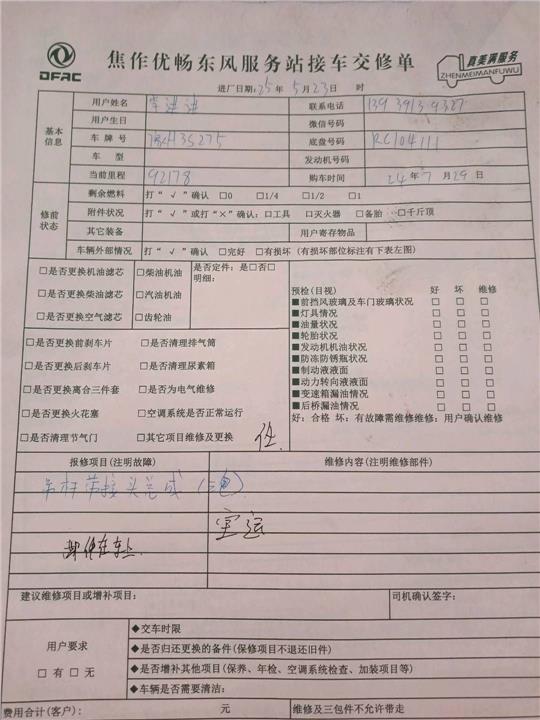 DFAC
焦作优畅东风服务站接车交修单
真美满服务
ZHENMEIMANFUWU
进厂日期:25年5月23日 时
基本信息
用户姓名 李进进 联系电话 13939139327
用户生日 微信号码
车牌号 豫H35275 底盘号码 RC104111
车型 发动机号码
当前里程 92178 购车时间 24年7月29日
修前状态
剩余燃料 打“√”确认 □0 □1/4 □1/2 □1
附件状况 打“√”或打“×”确认:□工具 □灭火器 □备胎 □千斤顶
其它装备 用户寄存物品
车辆外部情况 打“√”确认 □完好 □有损坏(有损坏部位标注有下表左图)
□是否更换机油滤芯 □柴油机油
□是否更换柴油滤芯 □汽油机油
□是否更换空气滤芯 □齿轮油
是否定件:是□否□
明细:
□是否更换前刹车片 □是否清理排气筒
□是否更换后刹车片 □是否清理尿素箱
□是否更换离合三件套 □是否为电气维修
□是否更换火花塞 □空调系统是否正常运行
□是否清理节气门 □其它项目维修及更换
预检(目视) 好 坏 维修
■前挡风玻璃及车门玻璃状况 □ □ □
■灯具情况 □ □ □
■油量状况 □ □ □
■轮胎状况 □ □ □
■发动机机油状况 □ □ □
■防冻防锈瓶状况 □ □ □
■制动液液面 □ □ □
■动力转向液液面 □ □ □
■变速箱漏油情况 □ □ □
■后桥漏油情况 □ □ □
好:合格 坏:有故障需维修维修:用户确认维修
报修项目(注明故障) 维修内容(注明维修部件)
吊杆带接头总成
空运
建议维修项目或增补项目: 司机确认签字:
用户要求
□有□无
◆交车时限
◆是否归还更换的备件(保修项目不退还旧件)
◆是否增补其他项目(保养、年检、空调系统检查、加装项目等)
◆车辆是否需要清洁:
费用合计(客户): 元 维修及三包件不允许带走